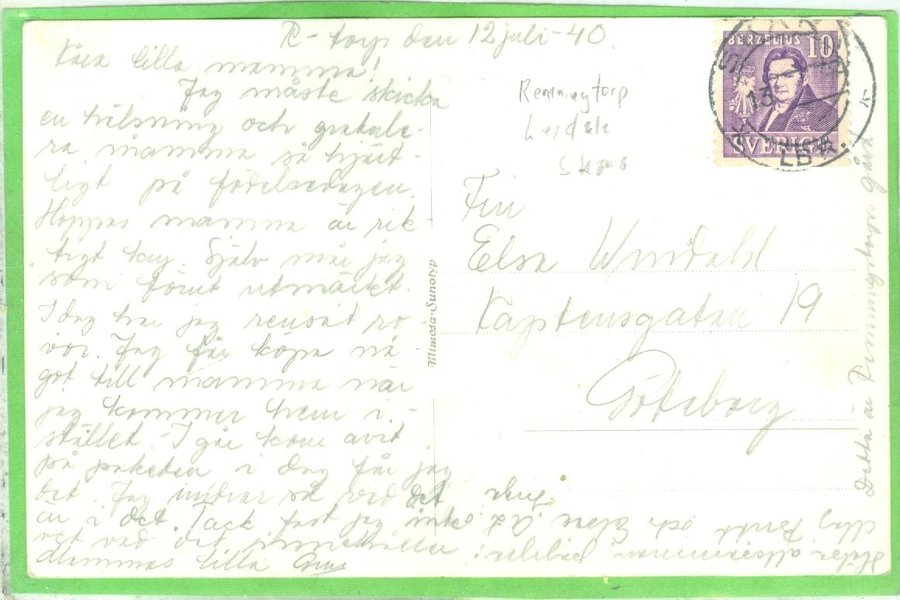 R-torp den 12 juli-40.
Kära lilla mamma!
Jag måste skicka
en hälsning och gratule-
ra mamma så hjärt-
ligt på födelsedagen.
Hoppas mamma är rik-
tigt kry. Själv mår jag
som förut utmärkt.
I dag har jag rensat ro
vor. Jag får köpa nå
got till mamma när
jag kommer hem i-
stället. I går kom avit
på paketen i dag får jag
det. Jag undrar så vad det
är i det. Tack fast jag inte
vet vad det innehåller.
Mammas lilla
Remningtorp
Lerdala
Skara
BERZELIUS 10
SVERIGE
13
LBK
Fru
Elsa Windahl
Kaptensgatan 19
Göteborg
Mimosa-Sunotyp
Detta är Remningstorps Gård
Hälsa allesammans